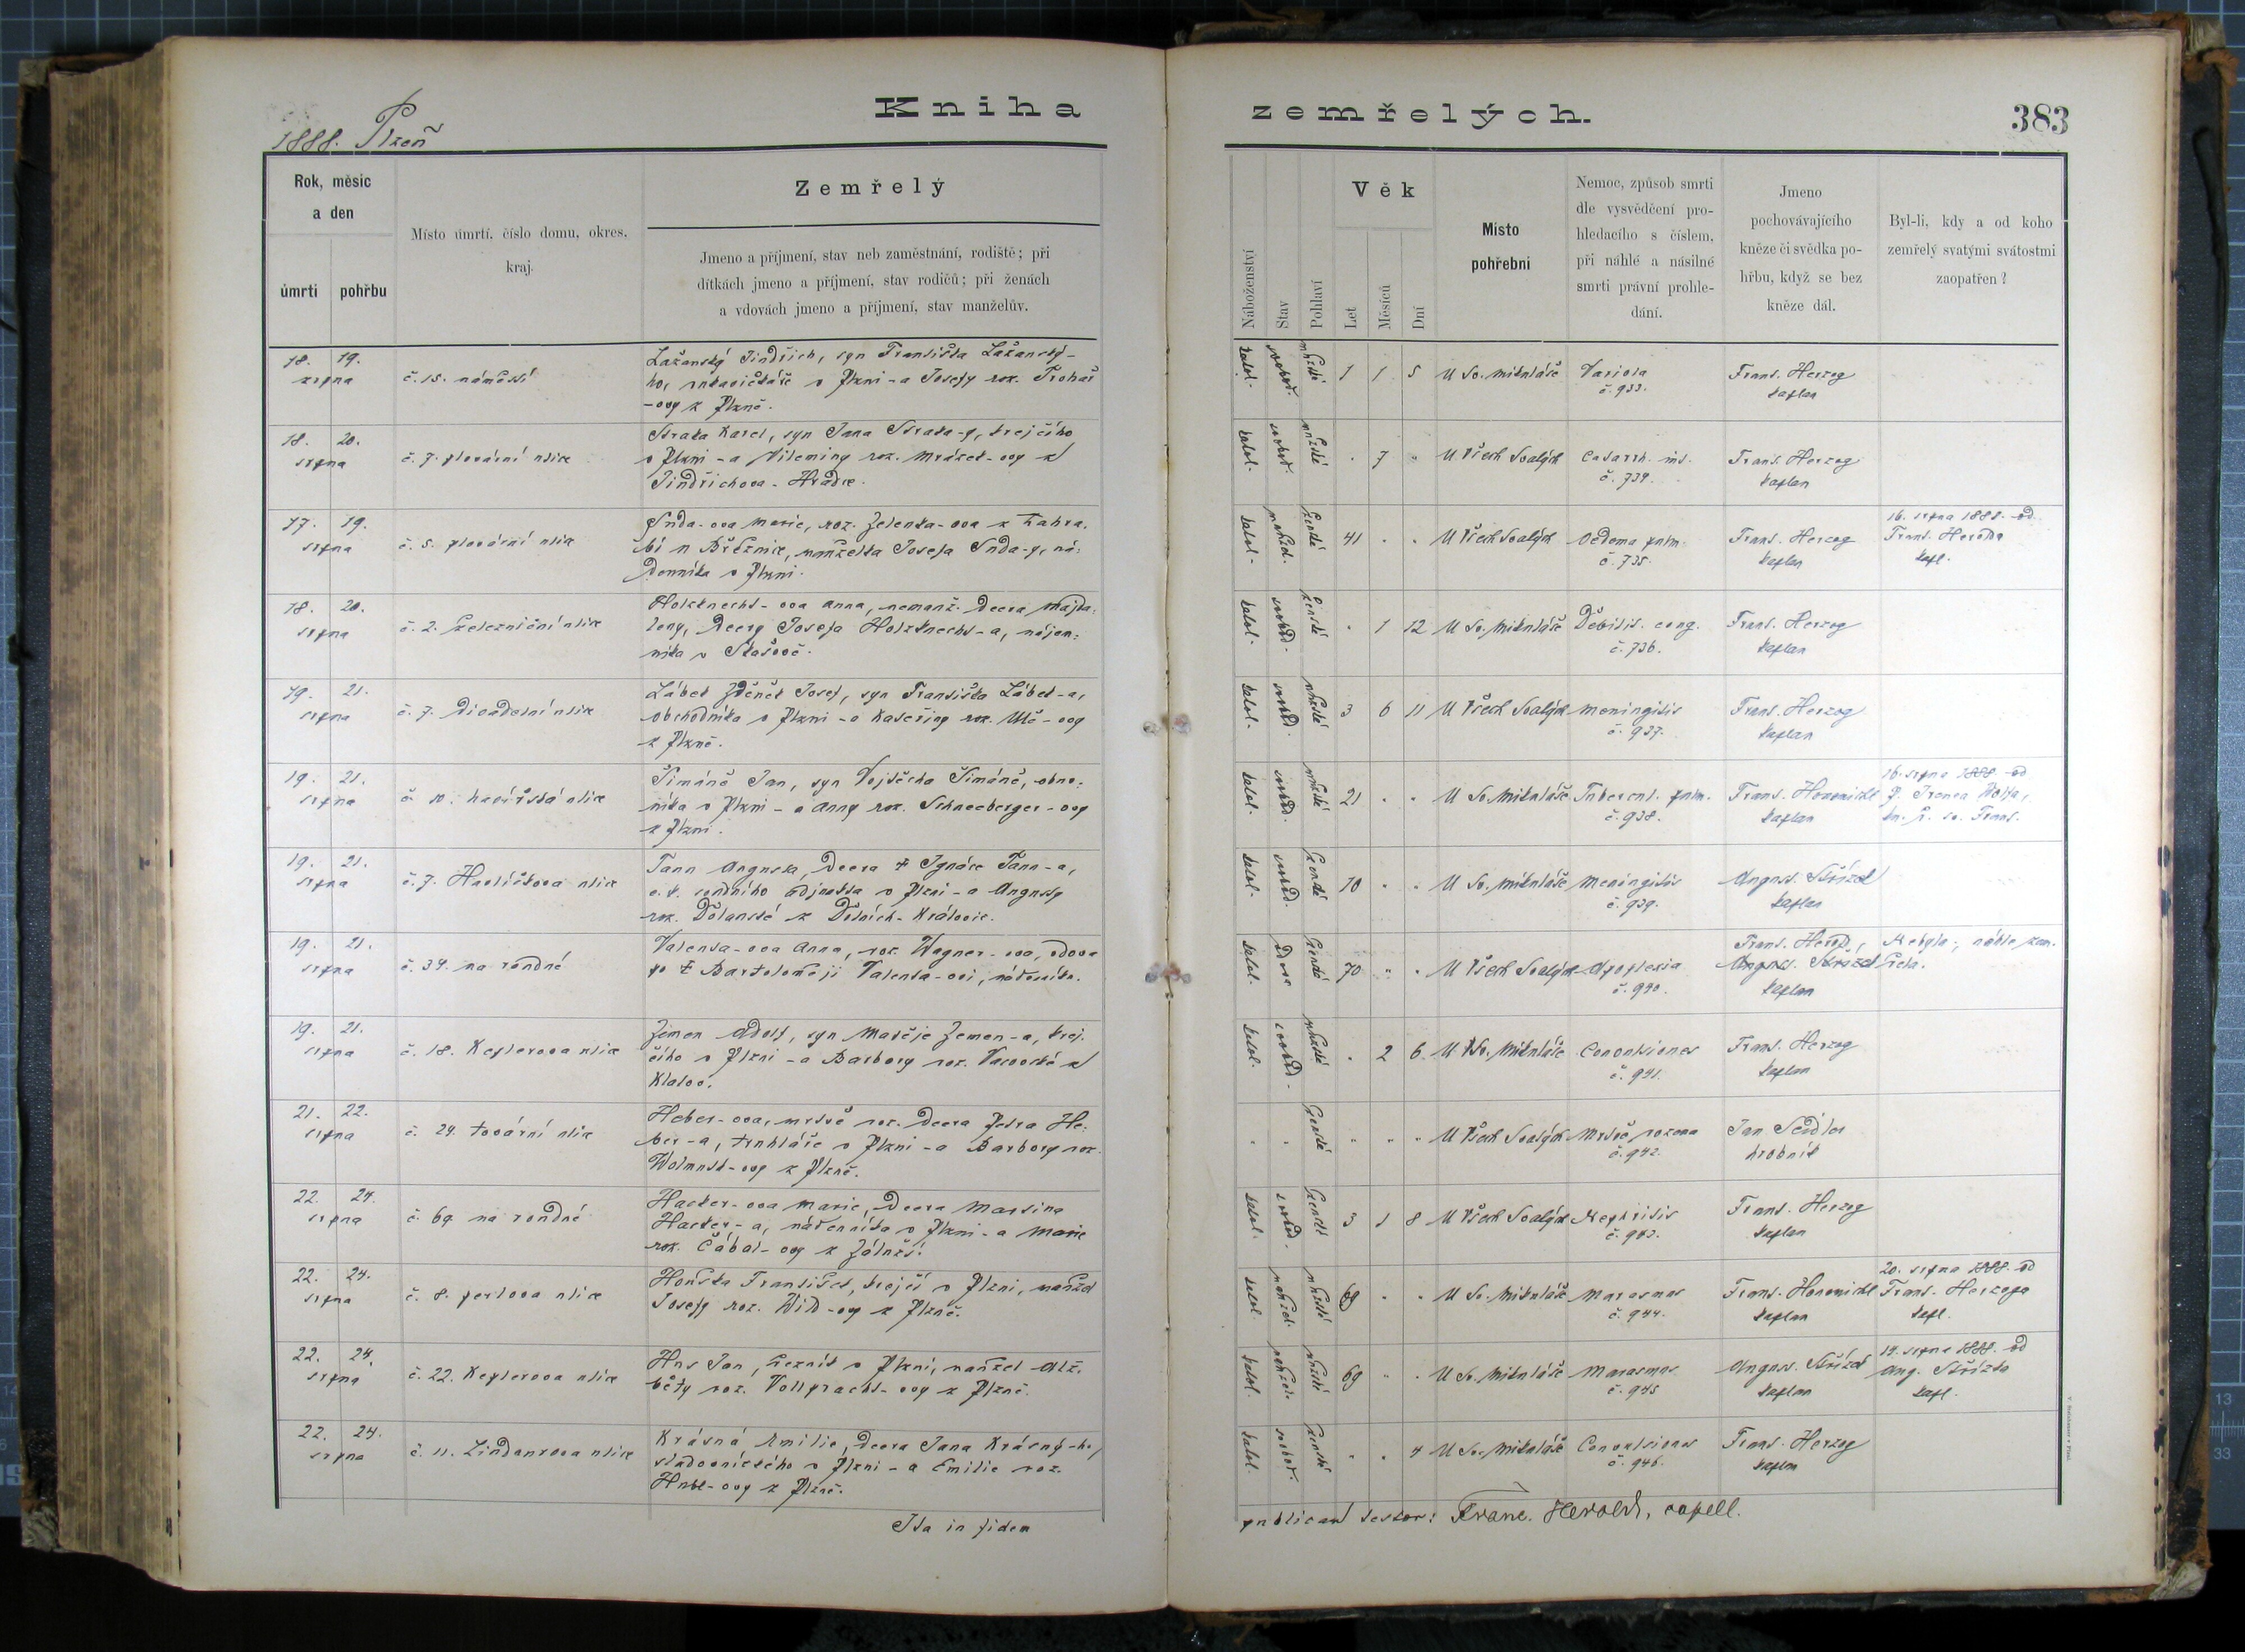 1888. Plzeň
Kniha zemřelých.
383
Rok, měsíc a den
úmrtí
pohřbu
Místo úmrtí, číslo domu, okres, kraj.
Zemřelý
Jmeno a příjmení, stav neb zaměstnání, rodiště; při
dítkách jmeno a příjmení, stav rodičů; při ženách
a vdovách jmeno a příjmení, stav manželův.
Náboženství
Stav
Pohlaví
Věk
Let
Měsíců
Dní
Místo
pohřební
Nemoc, způsob smrti
dle vysvědčení pro-
hledacího s číslem,
při náhlé a násilné
smrti právní prohle-
dání.
Jmeno
pochovávajícího
kněze či svědka po-
hřbu, když se bez
kněze dál.
Byl-li, kdy a od koho
zemřelý svatými svátostmi
zaopatřen?
18. 19.
srpna
č. 15. náměstí
Lažanský Jindřich, syn Františka Lažanský-
ho, rukavičkáře v Plzni - a Josefy roz.
-ovy z Plzně.
katol. svobod. mužské 1 1 5
U Sv. Mikuláše
Variola
č. 933.
Frant. Herzog
kaplan
18. 20.
srpna
č. 7. plovární ulice
Straka Karel, syn Jana Straka-y, krejčího
v Plzni - a Vileminy roz. Mrázek-ovy z
Jindřichova-Hradce.
katol. svobod. mužské . 7 "
U Všech Svatých
Catarrh. int.
č. 734.
Frant. Herzog
kaplan
17. 19.
srpna
č. 5. plovární ulice
Suda-ova Marie, roz. Zelenka-ova z
u Březnice, manželka Josefa Suda-y, ná-
denníka v Plzni.
katol. ženské 41 . .
U Všech Svatých
Oedema pulm.
č. 735.
Frant. Herzog
kaplan
16. srpna 1888. od
Frant. Herolda
kapl.
18. 20.
srpna
č. 2. železniční ulice
Holzknecht-ova Anna, nemanž. dcera Majda-
leny, dcery Josefa Holzknecht-a, nájem-
níka v
katol. svobod. ženské . 1 12
U Sv. Mikuláše
Debilit. cong.
č. 736.
Frant. Herzog
kaplan
19. 21.
srpna
č. 7. Divadelní ulice
Lábek Zděněk Josef, syn Františka Lábek-a,
obchodníka v Plzni - a Kateřiny roz. Ulč-ovy
z Plzně.
katol. svobod. mužské 3 6 11
U Všech Svatých
Meningitis
č. 937.
Frant. Herzog
kaplan
19. 21.
srpna
č. 10. havířská ulice
Šimáně Jan, syn Vojtěcha Šimáně, obuv-
níka v Plzni - a Anny roz. Schneeberger-ovy
z Plzni.
katol. svobod. mužské 21 . .
U Sv. Mikuláše
Tubercul. pulm.
č. 938.
Frant.
kaplan
16. srpna 1888. od
P. Irenea Wolfa,
kn. ř. sv. Frant.
19. 21.
srpna
č. 7. Havlíčkova ulice
Tann Augusta, dcera † Ignáce Tann-a,
c. k. soudního adjunkta v Plzni - a Augusty
roz. Dolanské z Dolních-Královic.
katol. svobod. ženské 10 . .
U Sv. Mikuláše
Meningitis
č. 939.
August. Střízek
kaplan
19. 21.
srpna
č. 34. na rondné
Valenta-ova Anna, roz. Wagner-ova, vdova
po † Bartoloměji Valenta-ovi,
katol. vdova ženské 70 " .
U Všech Svatých
Apoplexia
č. 940.
Frant. Herold,
August. Střízek
kaplan
Nebyla; náhle zem-
řela.
19. 21.
srpna
č. 18. Keplerova ulice
Zemen Adolf, syn Matěje Zemen-a, krej-
čího v Plzni - a Barbory roz. z
Klatov.
katol. svobod. mužské . 2 6
U Sv. Mikuláše
Convulsiones
č. 941.
Frant. Herzog
kaplan
21. 22.
srpna
č. 24. tovární ulice
Heber-ova, mrtvě roz. dcera Petra He-
ber-a, truhláře v Plzni - a Barbory roz.
-ovy z Plzně.
. . ženské " " "
U Všech Svatých
Mrtvě rozena
č. 942.
Jan Seidler
hrobník
22. 24.
srpna
č. 69. na rondné
Hacker-ova Marie, dcera Martina
Hacker-a, nádenníka v Plzni - a Marie
roz. Čábal-ovy z
katol. svobod. žensk. 3 1 8
U Všech Svatých
Nephritis
č. 943.
Frant. Herzog
kaplan
22. 24.
srpna
č. 8. perlova ulice
Houška František, krejčí v Plzni, manžel
Josefy roz. Wild-ovy z Plzně.
katol. manžel. mužské
U Sv. Mikuláše
Marasmus
č. 944.
Frant.
kaplan
20. srpna 1888. od
Frant. Herzoga
kapl.
22. 24.
srpna
č. 22. Keplerova ulice
Hus Jan, řezník v Plzni, manžel Alž-
běty roz. Vollpracht-ovy z Plzně.
katol. mužské 69 . .
U Sv. Mikuláše
Marasmus
č. 945
August. Střízek
kaplan
14. srpna 1888. od
Aug. Střízka
kapl.
22. 24.
srpna
č. 11. Lindaurova ulice
Krásná Emilie, dcera Jana Krásný-ho,
sládovnického v Plzni - a Emilie roz.
-ovy z Plzně.
katol. svobod. ženské . . 4
U Sv. Mikuláše
Convulsiones
č. 946.
Frant. Herzog
kaplan
Ita in fidem
publicam testor: Franc. Herold, capell.